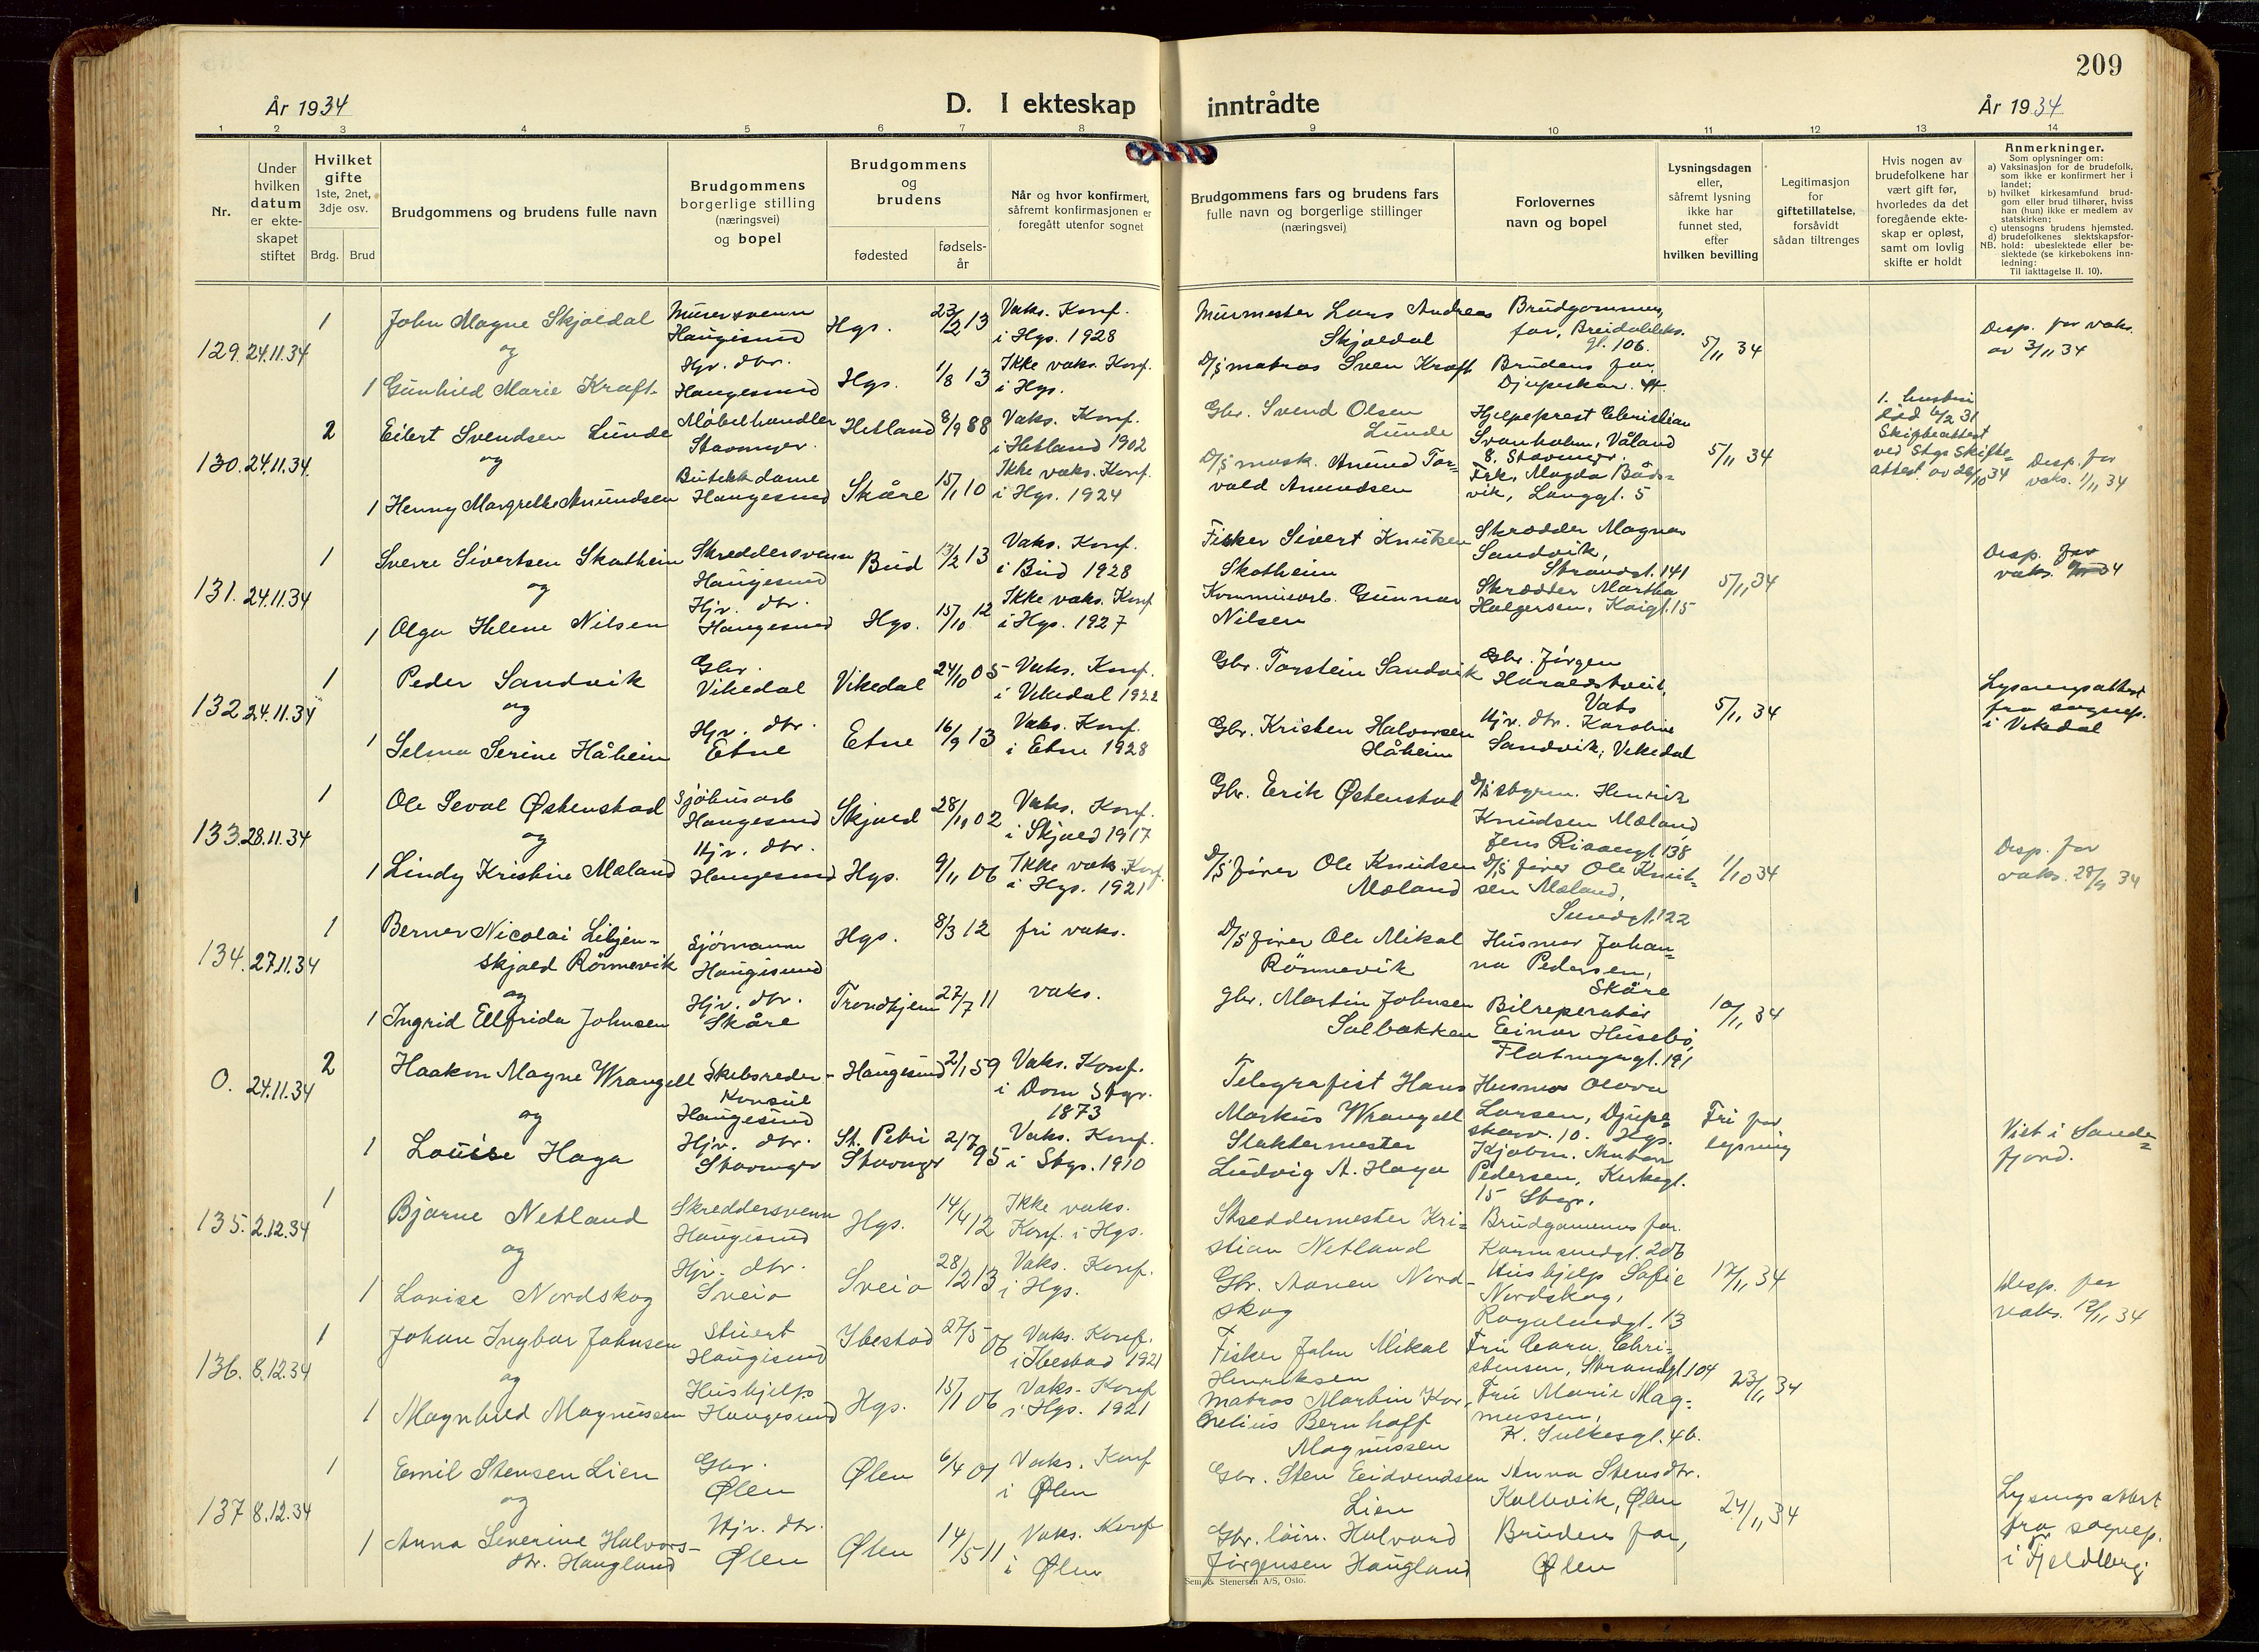 209
År 1934
D. I ekteskap inntrådte
År 1934
1 2 3 4 5 6 7 8 9 10 11 12 13 14
Nr.
Under hvilken datum er ekteskapet stiftet
Hvilket gifte
1ste, 2net, 3dje osv.
Brdg. Brud
Brudgommens og brudens fulle navn
Brudgommens borgerlige stilling (næringsvei) og bopel
Brudgommens og brudens
fødested
fødselsår
Når og hvor konfirmert, såfremt konfirmasjonen er foregått utenfor sognet
Brudgommens fars og brudens fars fulle navn og borgerlige stillinger (næringsvei)
Forlovernes navn og bopel
Lysningsdagen eller, såfremt lysning ikke har funnet sted, efter hvilken bevilling
Legitimasjon for giftetillatelse, forsåvidt sådan tiltrenges
Hvis nogen av brudefolkene har vært gift før, hvorledes da det foregående ekteskap er opløst, samt om lovlig skifte er holdt
Anmerkninger.
Som oplysninger om:
a) Vaksinasjon for de brudefolk, som ikke er konfirmert her i landet;
b) hvilket kirkesamfund brudgom eller brud tilhører, hviss han (hun) ikke er medlem av statskirken;
c) utensogns brudens hjemsted.
d) brudefolkenes slektskapsforhold: ubeslektede eller beslektede (se kirkebokens innledning:
NB.
Til iakttagelse II. 10).
129. 24.11.34
1 John Magne Skjoldal Murersvenn Haugesund Hgs. 23/2 13 Vaks. Konf. i Hgs. 1928
og
1 Gunhild Marie Kraft Hjv. dtr. Haugesund Hgs. 1/8 13 Ikke vaks. Konf. i Hgs.
Murmester Lars Andreas Skjoldal
D/s matros Sven Kraft
Brudgommens far, Breidablikgl. 106.
Brudens far, Djupeskar. 44.
5/11 34
Disp. for vaks. av 3/11 34
130. 24.11.34.
2 Eilert Svendsen Lunde Møbelhandler Stavanger. Hetland 8/9 88 Vaks. Konf. i Hetland 1902
og
1 Henny Margrethe Amundsen Butikkdame Haugesund Skåre 15/1 10 Ikke vaks. Konf. i Hgs. 1924
Gbr. Svend Olsen Lunde
D/s mask. Amund Torvald Amundsen
Hjelpeprest Christian Svanholm, Våland 8. Stavanger.
Frk. Magda Bådsvik, Langgt. 5
5/11 34
1. hustru død 6/2 31 Skifteattest ved Stgs Skifteattest av 26/10 34
Disp. for vaks. 1/11 34
131. 24.11.34
1 Sverre Sivertsen Skotheim Skreddersvenn Haugesund Bud 13/2 13 Vaks. Konf. i Bud 1928
og
1 Olga Helene Nilsen Hjv. dtr. Haugesund Hgs. 15/10 12 Ikke vaks. Konf i Hgs. 1927
Fisker Sivert Knutsen Skotheim
Kommunearb. Gunnar Nilsen
Skredder Magnar Sandvik, Strandgt. 141
Skredder Martha Holgersen, Kaigt. 15
5/11 34
Disp. for vaks.
132 24.11.34
1 Peder Sandvik Gbr. Vikedal Vikedal 24/10 05 Vaks. Konf. i Vikedal 1922
og
1 Selma Serine Håheim Hjv. dtr. Etne Etne 16/9 13 Vaks. Konf. i Etne 1928
Gbr. Torstein Sandvik
Gbr. Kristen Halvorsen Håheim
Gbr. Jørgen Haraldstveit, Vats
Hjv. dtr. Karoline Sandvik, Vikedal
5/11 34
Lysningsattest fra sognep. i Vikedal
133. 28.11.34
1 Ole Seval Østenstad Sjøhusarb Haugesund Skjold 28/11 02 Vaks. Konf. i Skjold 1917
og
1 Lindy Kristine Mæland Hjv. dtr. Haugesund Hgs. 9/11 06 Ikke vaks Konf. i Hgs. 1921
Gbr. Erik Østenstad
D/s fører Ole Knudsen Mæland
D/s styrm. Henrik Knudsen Mæland, Jens Risøengt 138
D/s fører Ole Knutsen Mæland, Sundgt. 122
1/10 34
Disp. for vaks. 28/9 34
134. 27.11.34
1 Berner Nicolai Liljenskjold Rönnevik Sjömann Haugesund Hgs. 8/3 12 fri vaks.
og
1 Ingrid Ellfrida Johnsen Hjv. dtr. Skåre Trondhjem 27/7 11 vaks.
D/s fører Ole Mikal Rönnevik
Gbr. Martin Johnsen Solbakken
Husmor Johanna Pedersen, Skåre
Bilreperatør Einar Husebö, Flotmyrgt. 191
10/11 34
0. 24.11.34
2 Haakon Magne Wrangell Skibsreder - Konsul Haugesund Haugesund 2/1 59 Vaks. Konf. i Dom Stgr. 1873
og
1 Louise Haga Hjv. dtr. Stavanger St. Petri Stavnger 2/7 95 Vaks. Konf. i Stgs. 1910
Telegrafist Hans Markus Wrangell
Slaktermester Ludvig A. Haga
Husmor Olova Larsen, Djupeskarv. 10. Hgs.
Kjøbm. Anton Pedersen, Kirkegt. 15 Stvgr.
Fri for lysning
Viet i Sandefjord.
135. 2.12.34
1 Bjarne Netland Skreddersvenn Haugesund Hgs. 14/4 12 Ikke vaks. Konf. i Hgs.
og
1 Lovise Nordskog Hjv. dtr. Sveio Sveio 28/12 13 Vaks. Konf. i Hgs.
Skreddermester Kristian Netland
Gbr. Aanen Nordskog
Brudgommens far. Karmsundgt. 206
Hushjelp Sofie Nordskog, Rogalandgt. 13
17/11 34
Disp. for vaks. 19/11 34
136. 8.12.34
1 Johan Ingbar Johnsen Stuert Haugesund Ibestad 27/5 06 Vaks. Konf. i Ibestad 1921
og
1 Magnhild Magnussen Hushjelp Haugesund Hgs. 15/1 06 Vaks. Konf i Hgs. 1921
Fisker John Mikal Henriksen
Matros Martin Kornelius Bernhoff Magnussen
Fru Cara Christensen, Strandgt. 104
Fru Marie Magnussen, K. Sulkesgt. 46.
23/11 34
137 8.12.34
1 Emil Stensen Lien Gbr. Ølen Ølen 6/4 01 Vaks. Konf i Ølen
og
1 Anna Severine Halvorsdtr. Haugland Hjv. dtr. Ølen Ølen 14/5 11 Vaks. Konf i Ølen
Gbr. Sten Eidvendsen Lien
Gbr. løin. Halvard Jørgensen Haugland
Anna Stensdtr. Kaltvik, Ølen
Brudens far, Ølen
24/11 34
Lysingsattest fra sognep. i Fjeldberg
Sem & Stenersen A/S, Oslo.